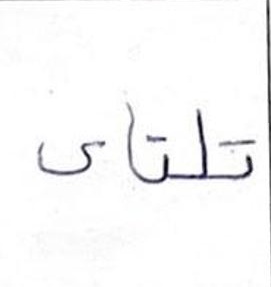 تلتاى